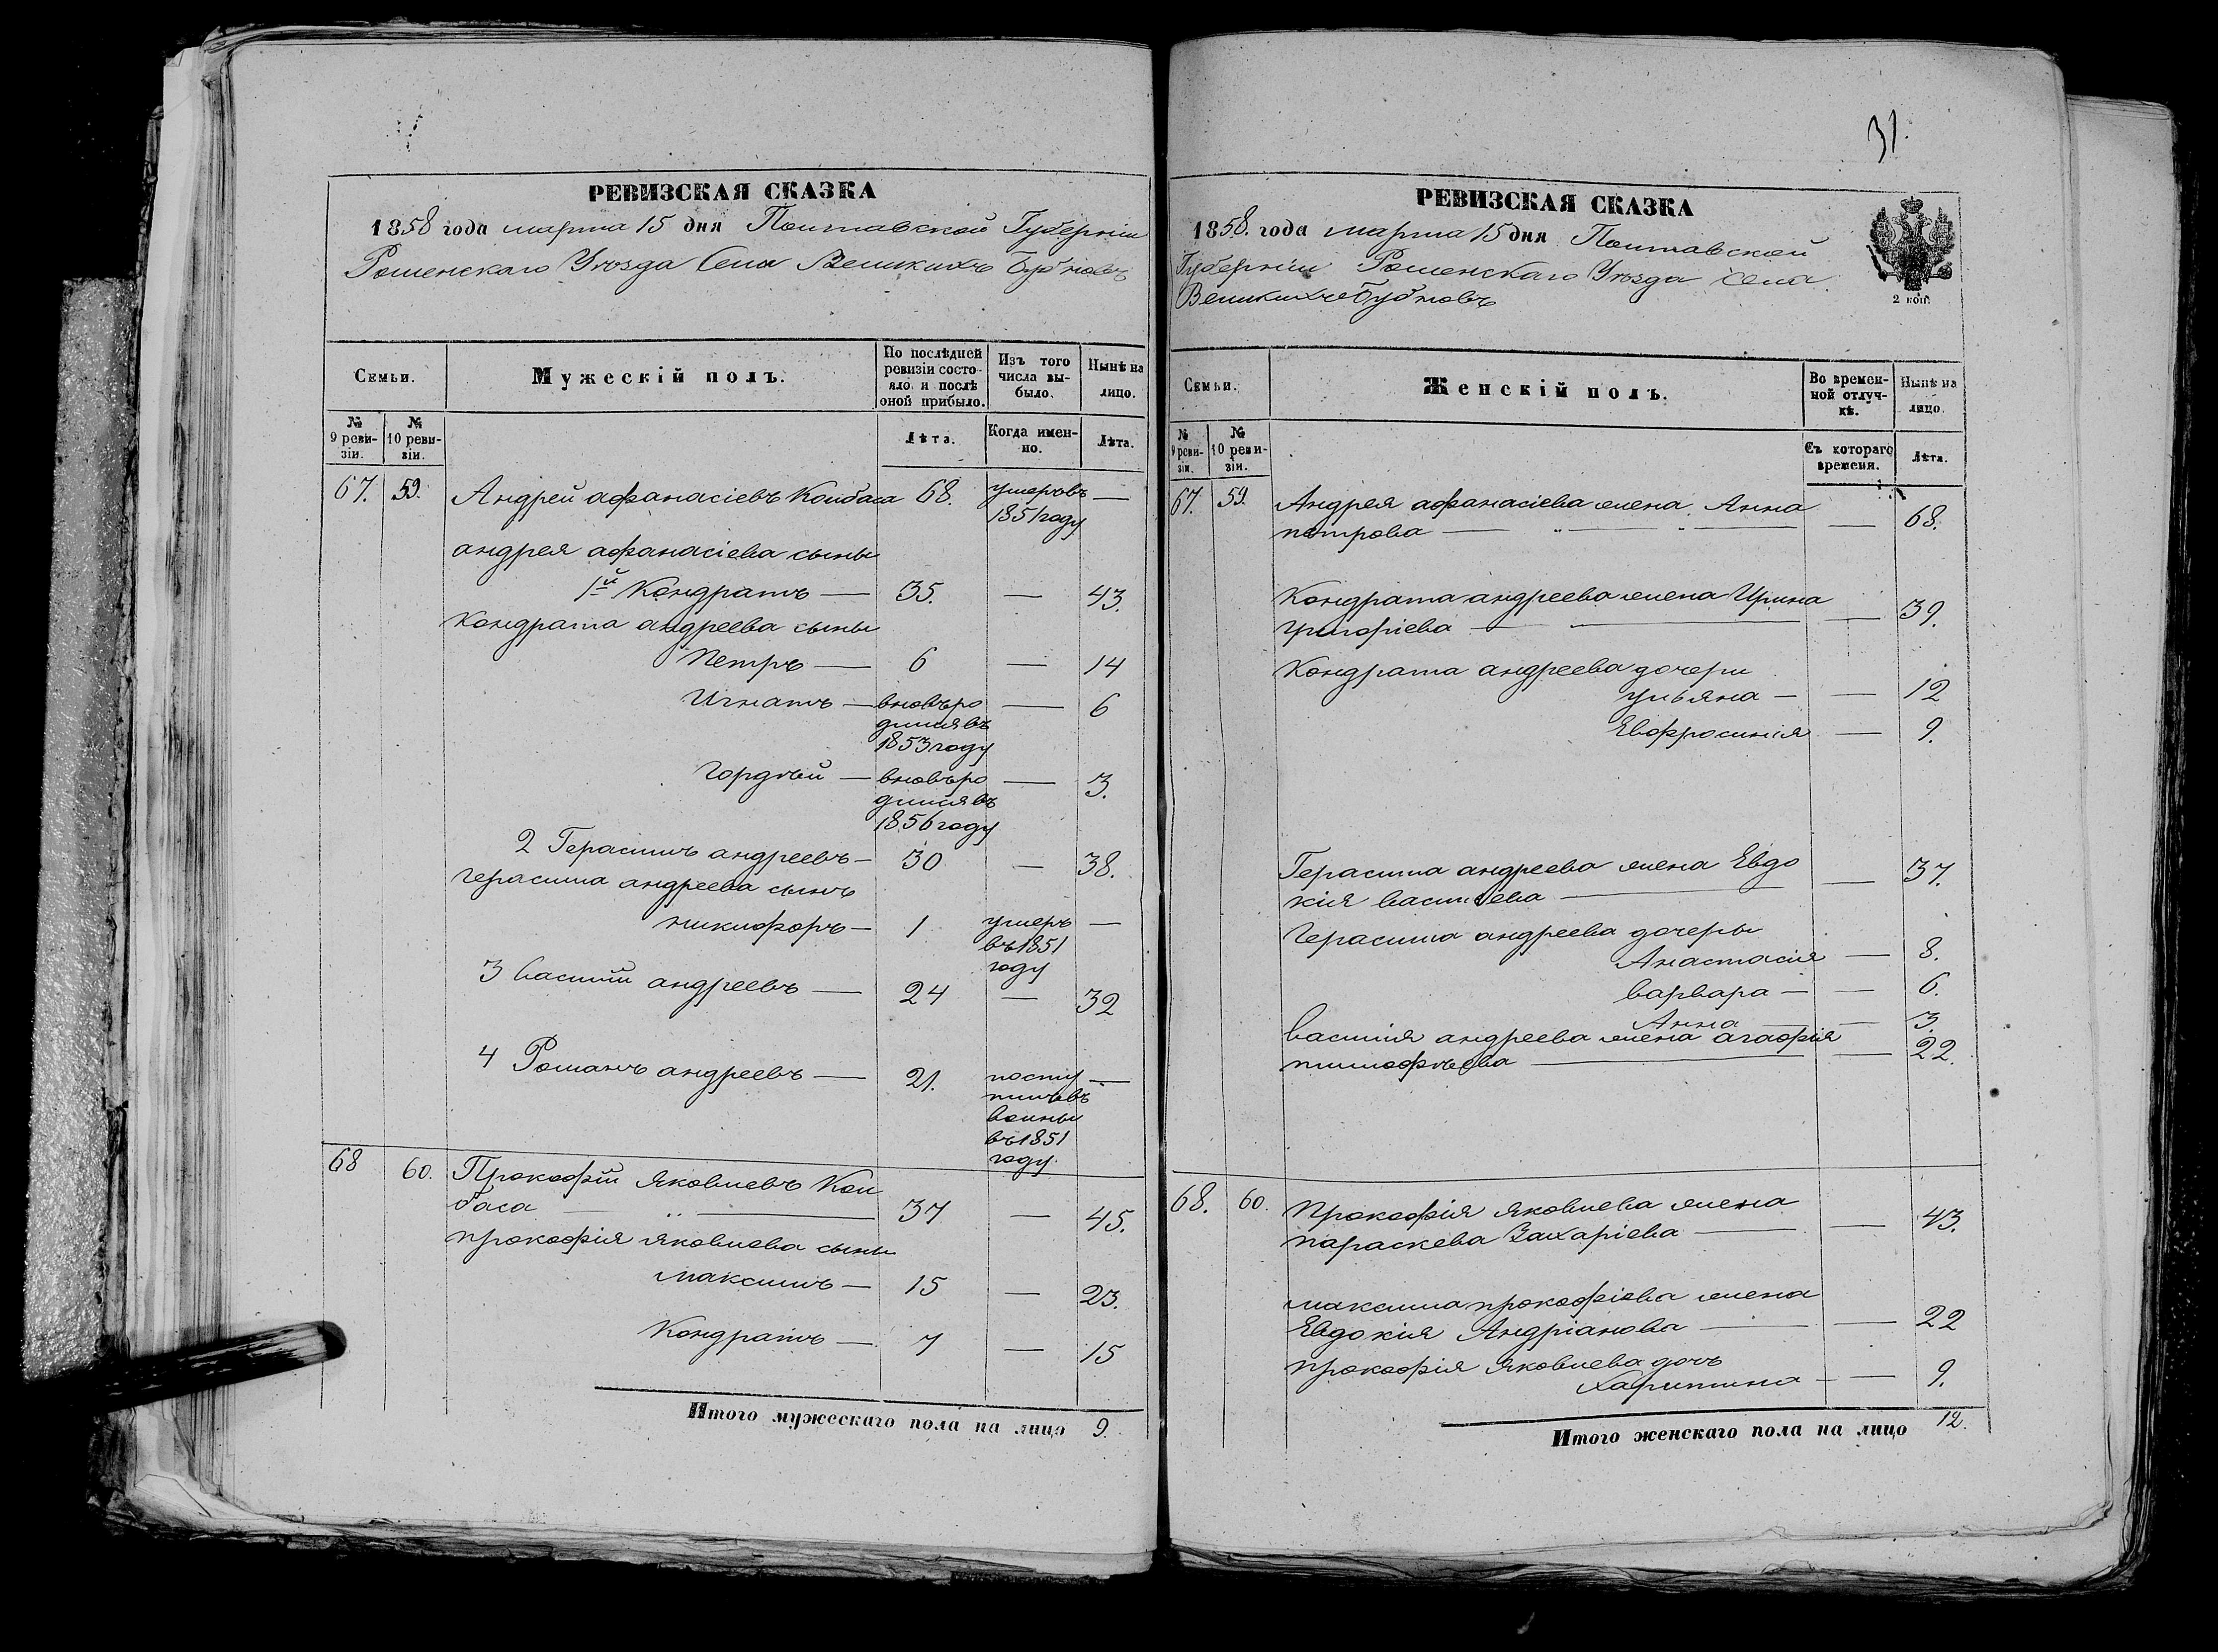 РЕВИЗСКАЯ СКАЗКА
1858 года марта 15 дня Полтавской Губерніи
Роменскаго Уѣзда Села Великихъ Бубновъ
Семьи.
Мужескій полъ.
По послѣдней ревизіи состояло и послѣ оной прибыло.
Изъ того числа выбыло.
Нынѣ на лицо.
№ 9 ревизіи.
№ 10 ревизіи.
Лѣта.
Когда именно.
Лѣта.
67. 59. Андрей афанасіевъ Колбаса 68. умеръ въ —
1851 году
андрея афанасіева сыны
1й Кондратъ — 35. — 43.
Кондрата андреева сыны
Петръ — 6 — 14
Игнатъ — вновь ро — 6
дился въ
1853 году
Гордѣй — вновь ро — 3.
дился въ
1856 году
2 Герасимъ андреевъ — 30 — 38.
герасима андреева сынъ
никифоръ — 1 умеръ —
въ 1851
году
3 василій андреевъ — 24 — 32
4 Романъ андреевъ — 21. посту —
пилъ въ
воины
въ 1851
году.
68 60. Прокофій Яковлевъ Кол
баса — 37 — 45.
прокофія яковлева сыны
максимъ — 15 — 23.
Кондратъ — 7 — 15
Итого мужескаго пола на лицо 9.
31.
РЕВИЗСКАЯ СКАЗКА
1858. года марта 15 дня Полтавской
Губерніи Роменскаго Уѣзда села
Великихъ Бубновъ
2 коп.
Семьи.
Женскій полъ.
Во временной отлучкѣ.
Нынѣ на лицо.
№ 9 ревизіи.
№ 10 ревизіи.
Съ котораго времени.
Лѣта.
67. 59. Андрея афанасіева жена Анна
петрова — — 68.
Кондрата андреева жена Ирина
григоріева — — 39.
Кондрата андреева дочери
ульяна — — 12
Евфросинія — 9.
Герасима андреева жена Евдо
кія васильева — — 37.
герасима андреева дочеры
Анастасія — 8.
варвара — — 6.
Анна — — 3.
василія андреева жена агафія
тимофѣева — — 22.
68. 60. Прокофія яковлева жена
параскева Захаріева — — 43.
максима прокофіева жена
Евдокія Андріанова — — 22
прокофія Яковлева дочь
Харитина — — 9.
Итого женскаго пола на лицо 12.